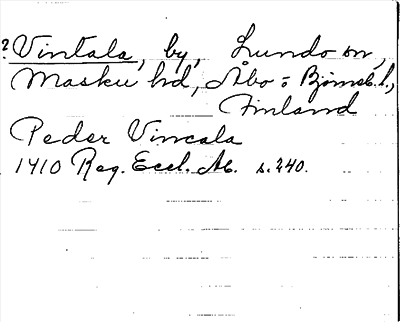 ? Vintala, by, Lundo sn,
Masku hd, Åbo = Björneb. l.,
Finland
Peder Vincala
1410 Reg. Eccl. Ab. s. 240.